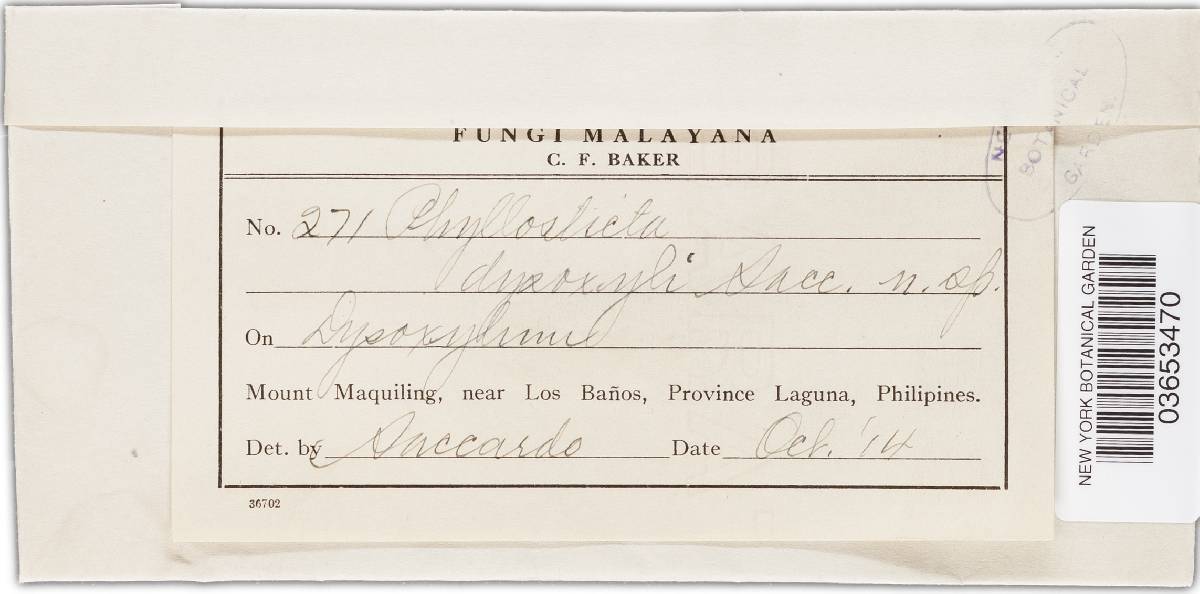 FUNGI MALAYANA
C. F. BAKER
No. 271 Phyllosticta
dysoxyli Sacc. n. sp.
On Dysoxylum
Mount Maquiling, near Los Baños, Province Laguna, Philipines.
Det. by Saccardo Date Oct. '14
36702
BOTANICAL
GARDEN
NEW YORK BOTANICAL GARDEN
03653470